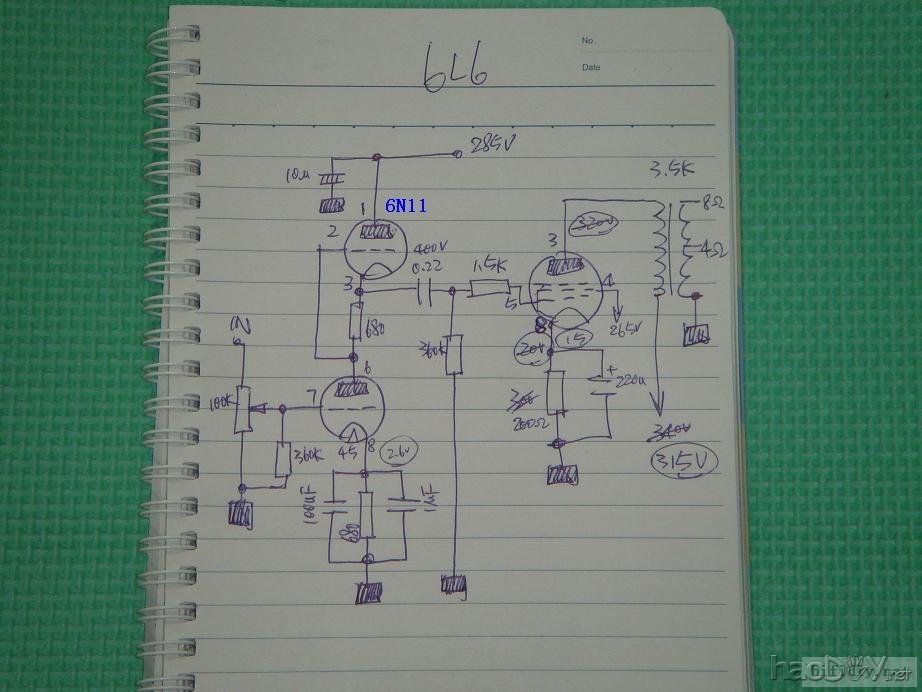 No.
6L6
Date
285V
10μ
3.5K
1
6N11
8Ω
2
320V
400V
3
4Ω
0.22
1.5K
3
5
4
265V
680
8
15
20V
IN
360K
6
220u
+
100K
7
300
200Ω
340V
360K
45
8
2.6V
315V
100μF
680
1μF
hasDIY.net
hifidiy.net